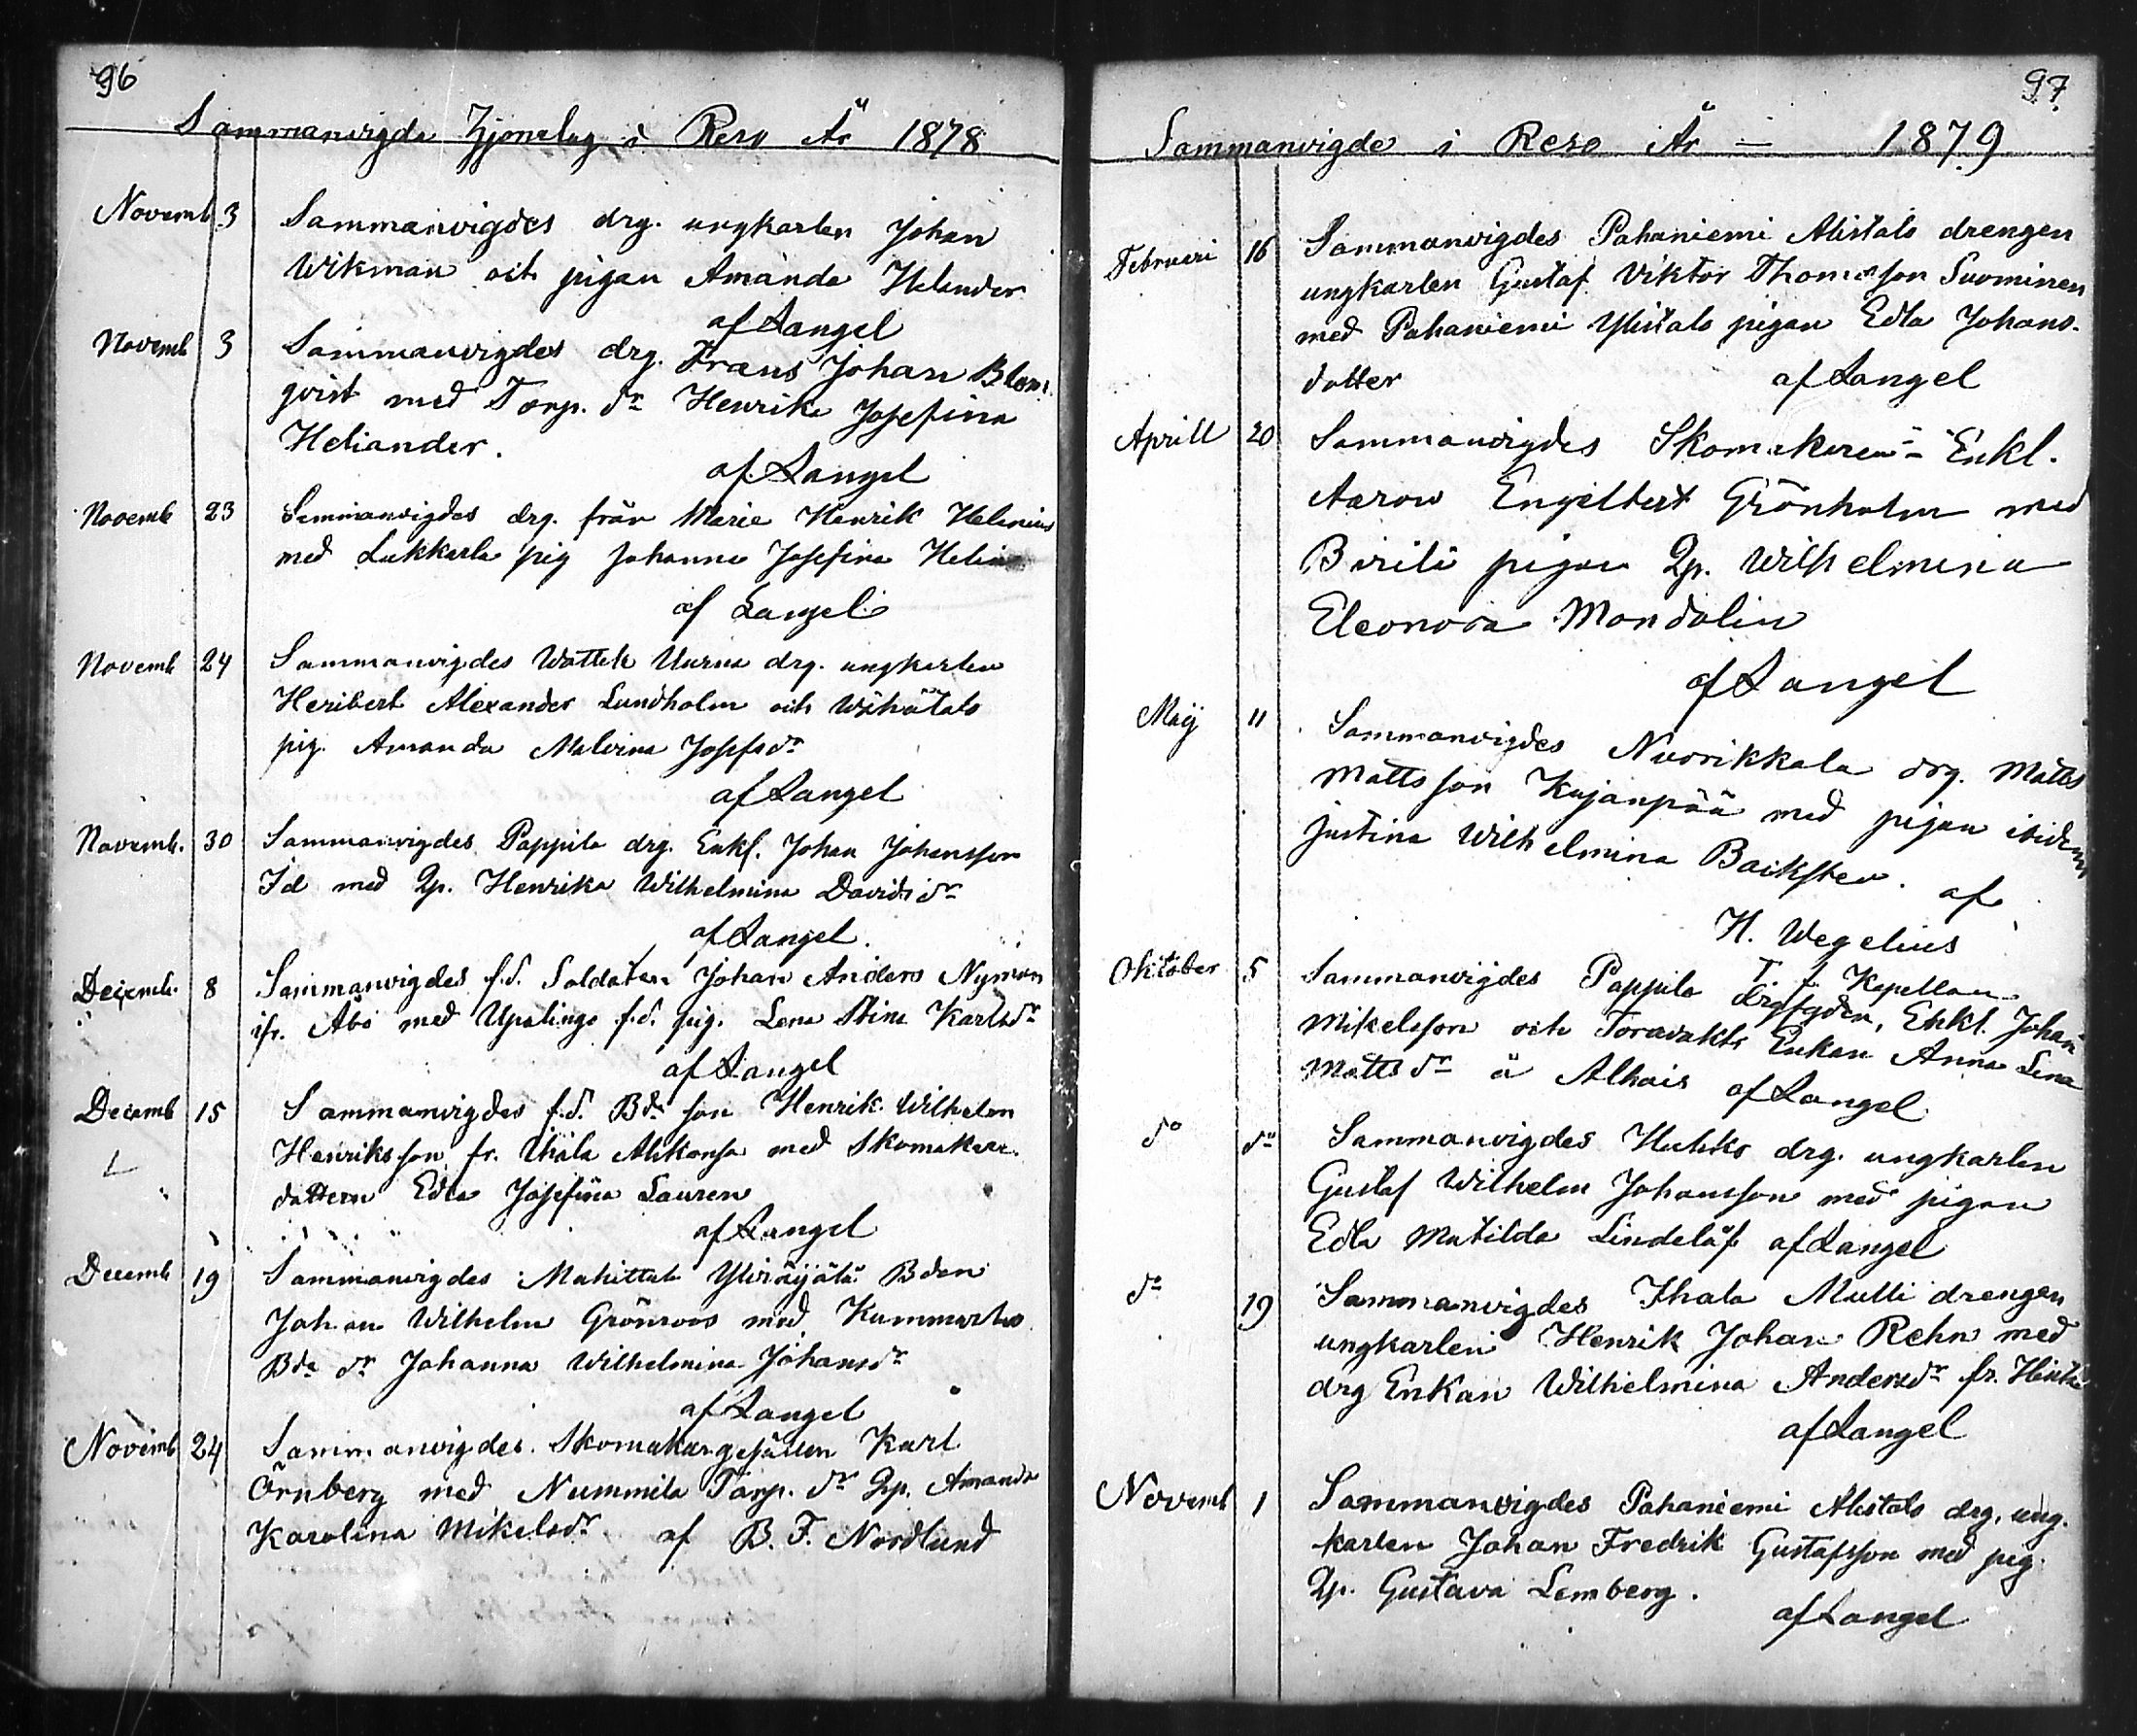 96
Sammanvigde Hjonelag i Reso År 1878
Novemb 3 Sammanvigdes drg. ungkarlen Johan
Wikman och pigan Amanda Helander
af Langel
Novemb 3 Sammanvigdes drg. Frans Johan Blom
qvist med Torp. dr Henrika Josefina
Heliander.
af Langel
Novemb 23 Sammanvigdes drg. från Marie Henrik Helenius
med Lukkarla pig Johanna Josefina
af Langel
Novemb 24 Sammanvigdes Wattela Uurna drg. ungkarlen
Heribert Alexander Lundholm och Wähätalo
pig. Amanda Malvina Josefsdr
af Langel
Novemb. 30 Sammanvigdes Pappila drg. Enkl. Johan Johansson
Id med Qp. Henrika Wilhelmina Davidsdr
af Langel.
Decemb. 8 Sammanvigdes f.d. Soldaten Johan Anders Nyman
ifr. Åbo med Upalinge f.d. pig. Lena Stina Karlsdr
af Langel
Decemb 15 Sammanvigdes f.d. Bd. son Henrik Wilhelm
Henriksson fr. Ihala Alikonsa med Skomakare
dottern Edla Josefina Lauren
af Langel
Decemb 19 Sammanvigdes Mahittula Yliräijälä Bden
Johan Wilhelm Grönroos med Kummerlas
Bda dr Johanna Wilhelmina Johansdr
af Langel
Novemb 24 Sammanvigdes Skomakargesällen Karl
Örnberg med Nummila Torp. dr Qp. Amanda
Karolina Mikelsdr af B. F. Nordlund
97
Sammanvigde i Reso År — 1879
Februari 16 Sammanvigdes Pahaniemi Alistalo drengen
ungkarlen Gustaf Viktor Thomasson Suominen
med Pahaniemi Ylistalo pigan Edla Johans-
dotter af Langel
Aprill 20 Sammanvigdes Skomakaren Enkl.
Aaron Engelbert Grönholm med
Birilä pigan Qp. Wilhelmina
Eleonora Mandalin
af Langel
Maij 11 Sammanvigdes Nuorikkala drg. Matts
Mattsson Kujanpää med pigan ibidem
Justina Wilhelmina Backsten. af
H. Wegelius
T. f. Kapellan
Oktober 5 Sammanvigdes Pappila drgfogden, Enkl. Johan
Mikelsson och Toravakts Enkan Anna Lena
Mattsdr å Alhais af Langel
do do Sammanvigdes Huhko drg. ungkarlen
Gustaf Wilhelm Johansson med pigan
Edla Matilda Lindelöf af Langel
do 19 Sammanvigdes Ihala Mulli drengen
ungkarlen Henrik Johan Rehn med
drg Enkan Wilhelmina Andersdr fr.
af Langel
Novemb 1 Sammanvigdes Pahaniemi Alistalo drg. ung.
karlen Johan Fredrik Gustafsson med pig.
Qp. Gustava Lemberg.
af Langel